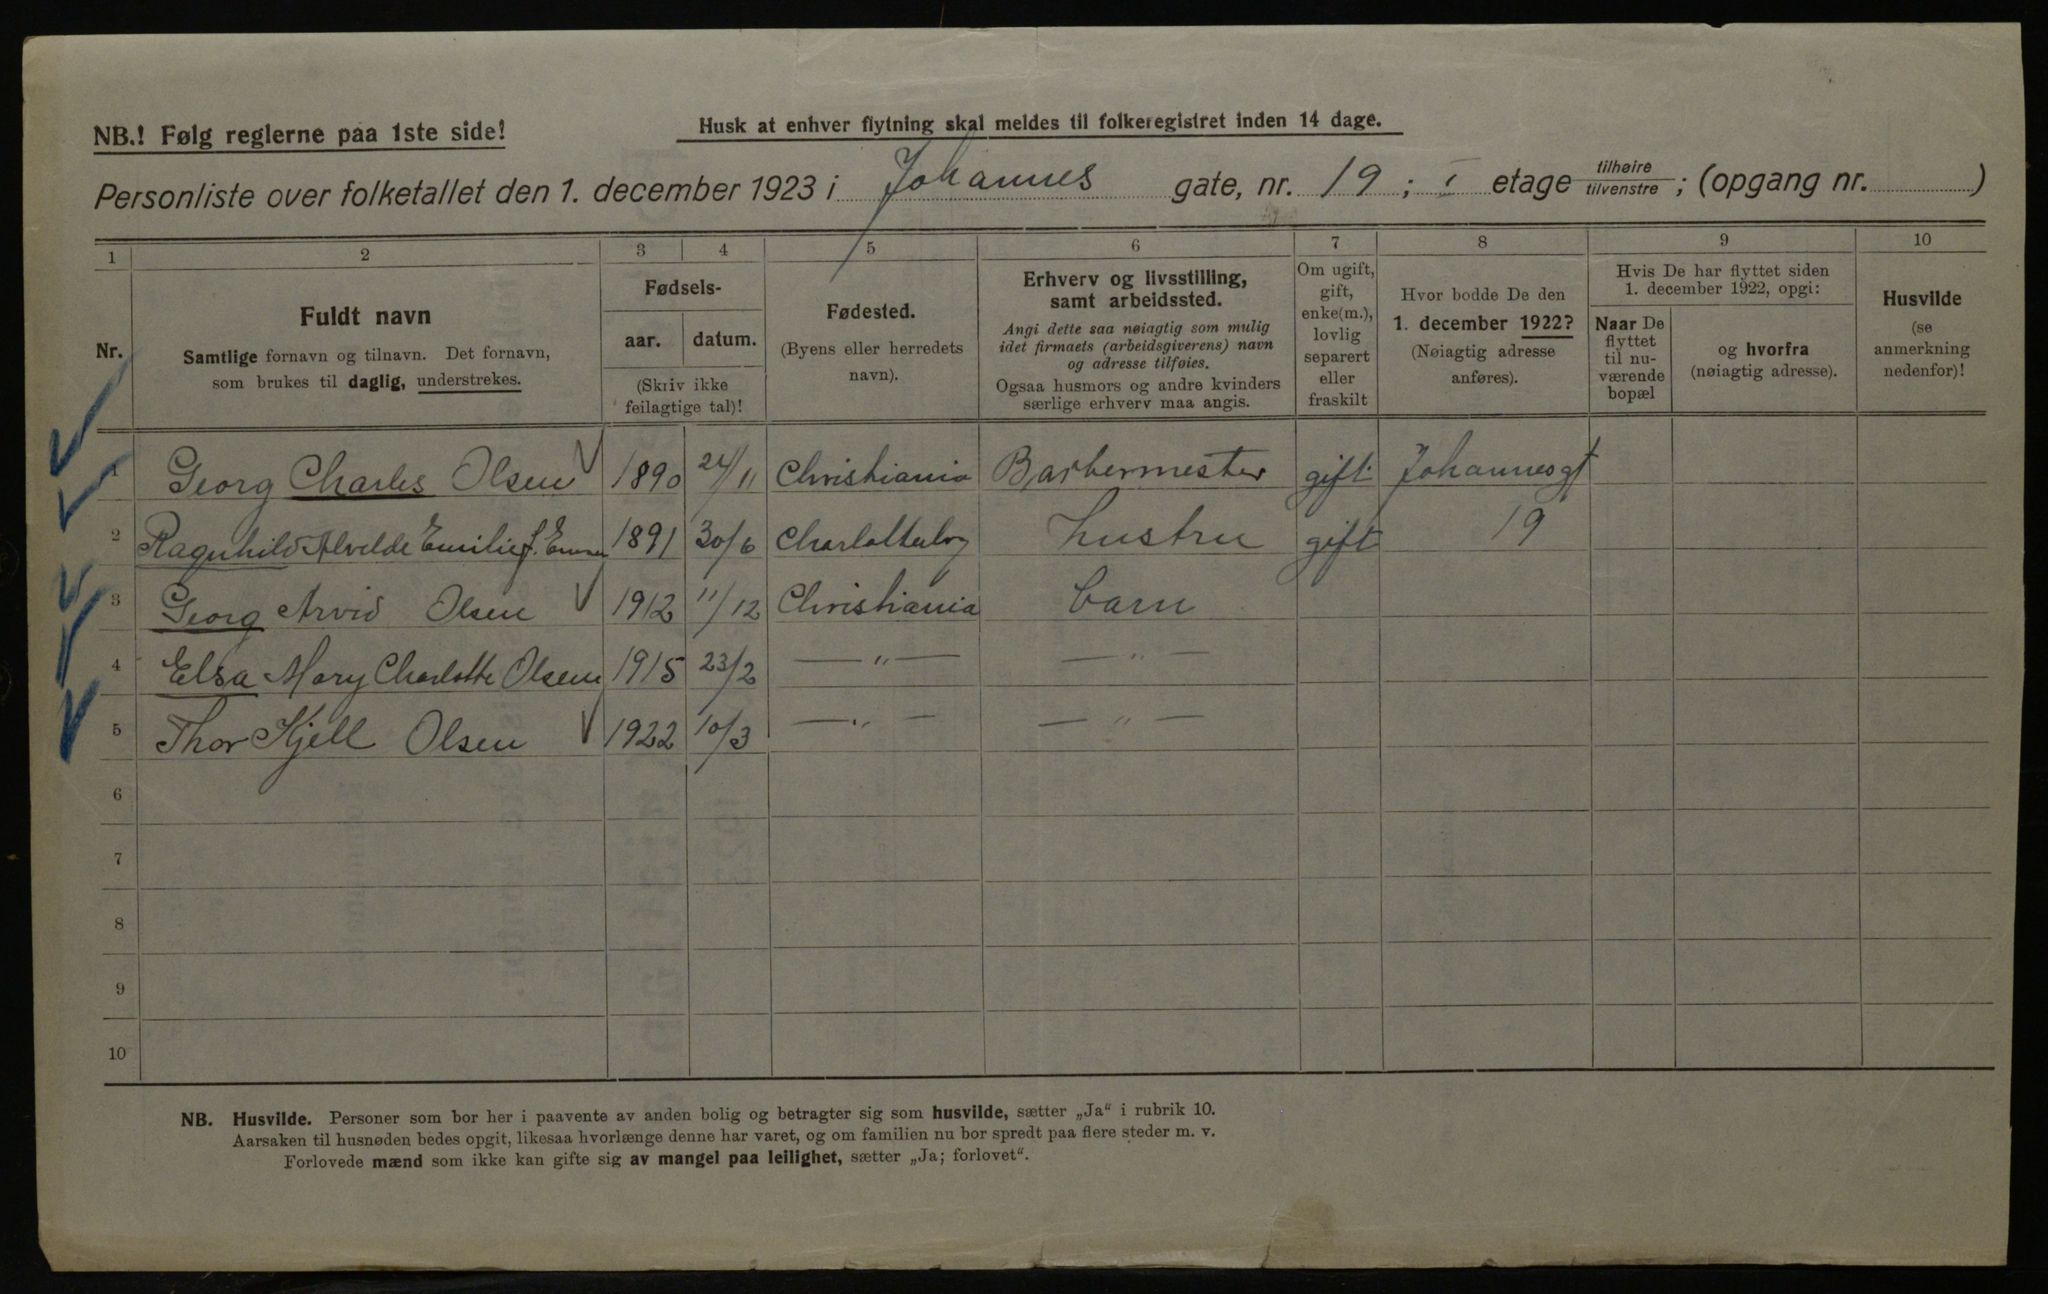 NB.! Følg reglerne paa 1ste side!
Husk at enhver flytning skal meldes til folkeregistret inden 14 dage.
Personliste over folketallet den 1. december 1923 i Johannes gate, nr. 19 ; I etage tilhøire/tilvenstre ; (opgang nr. )
1 2 3 4 5 6 7 8 9 10
Nr.
Fuldt navn
Samtlige fornavn og tilnavn. Det fornavn,
som brukes til daglig, understrekes.
Fødsels-
aar. datum.
(Skriv ikke
feilagtige tal)!
Fødested.
(Byens eller herredets
navn).
Erhverv og livsstilling,
samt arbeidssted.
Angi dette saa nøiagtig som mulig
idet firmaets (arbeidsgiverens) navn
og adresse tilføies.
Ogsaa husmors og andre kvinders
særlige erhverv maa angis.
Om ugift,
gift,
enke(m.),
lovlig
separert
eller
fraskilt
Hvor bodde De den
1. december 1922?
(Nøiagtig adresse
anføres).
Hvis De har flyttet siden
1. december 1922, opgi:
Naar De
flyttet
til nu-
værende
bopæl
og hvorfra
(nøiagtig adresse).
Husvilde
(se
anmerkning
nedenfor)!
1 Georg Charles Olsen 1890 24/11 Christiania Barbermester gift Johannesgt
2 Ragnhild Alvelde Emilie f. 1891 30/6 Charlottenbrg Hustru gift 19
3 Georg Arvid Olsen 1912 11/12 Christiania barn
4 Elsa Mary Charlotte Olsen 1915 23/2 — " — — " —
5 Thor Kjell Olsen 1922 10/3 — " — — " —
6
7
8
9
10
NB. Husvilde. Personer som bor her i paavente av anden bolig og betragter sig som husvilde, sætter „Ja“ i rubrik 10.
Aarsaken til husnøden bedes opgit, likesaa hvorlænge denne har varet, og om familien nu bor spredt paa flere steder m. v.
Forlovede mænd som ikke kan gifte sig av mangel paa leilighet, sætter „Ja; forlovet“.